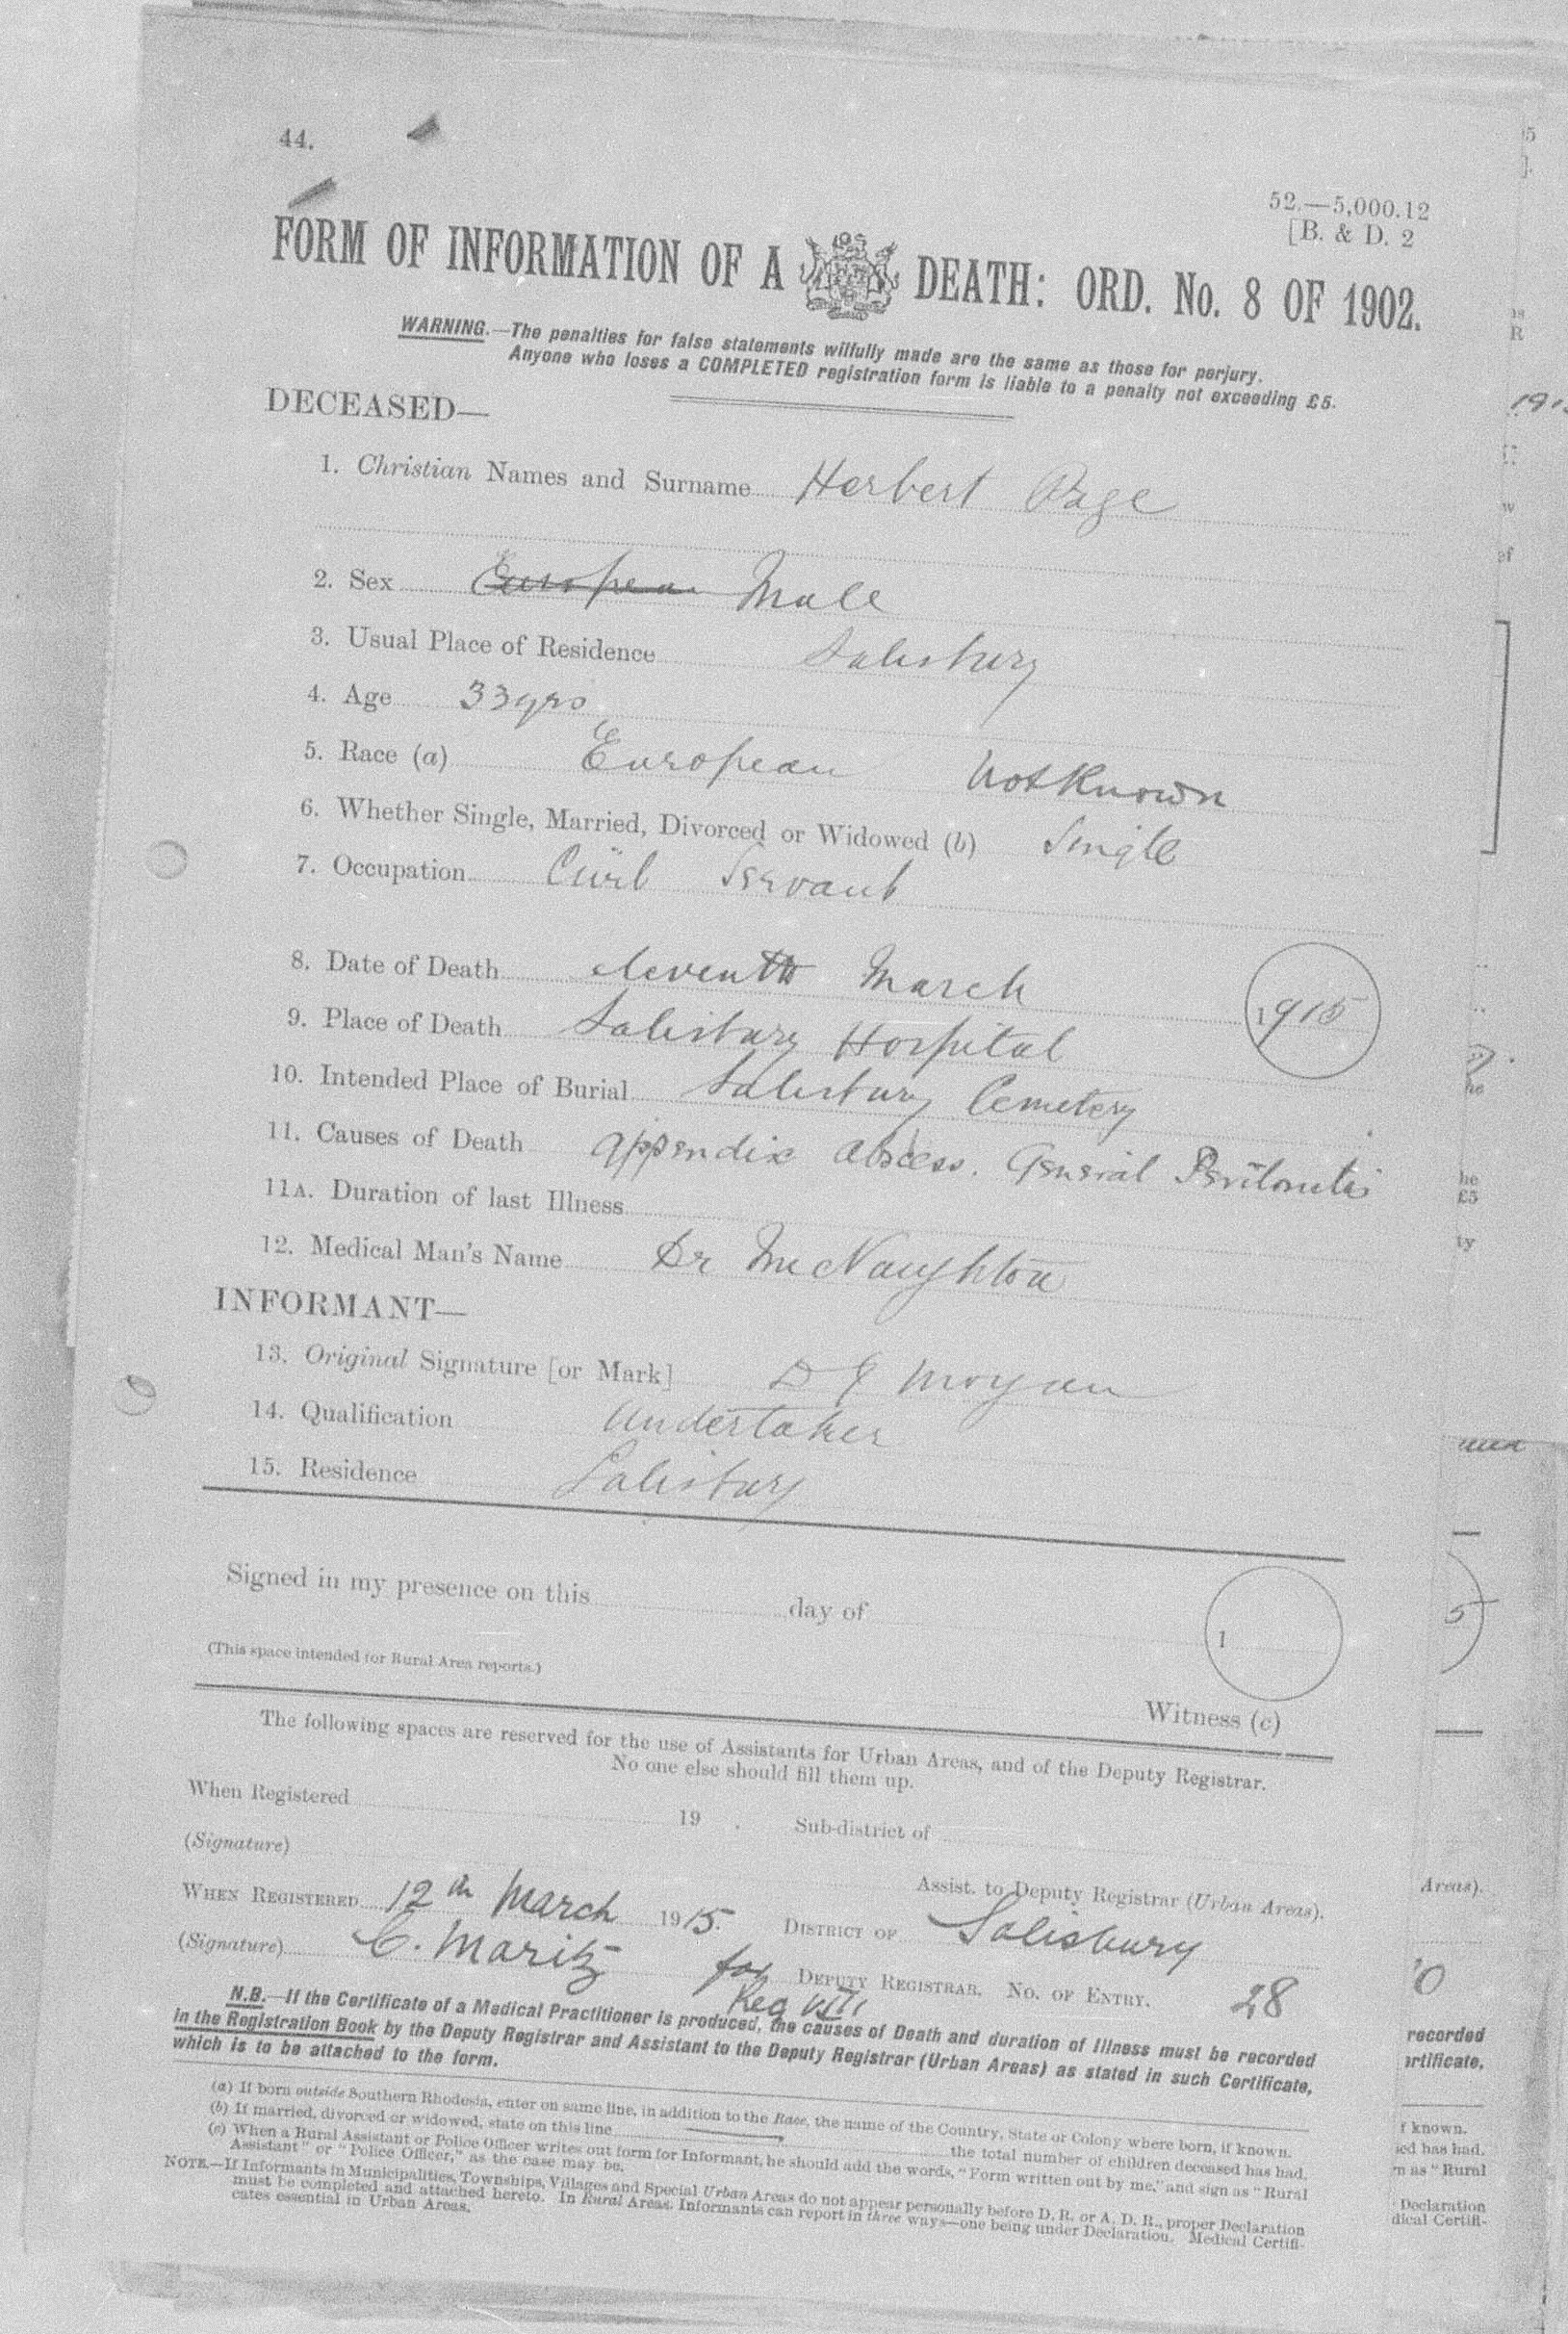 44.
52.—5,000.12
[B. & D. 2
FORM OF INFORMATION OF A DEATH: ORD. No. 8 OF 1902.
WARNING.—The penalties for false statements wilfully made are the same as those for perjury.
Anyone who loses a COMPLETED registration form is liable to a penalty not exceeding £5.
DECEASED—
1. Christian Names and Surname Herbert Page
2. Sex European Male
3. Usual Place of Residence Salisbury
4. Age 33 yrs
5. Race (a) European Not Known
6. Whether Single, Married, Divorced or Widowed (b) Single
7. Occupation Civil Servant
8. Date of Death eleventh March 1915
9. Place of Death Salisbury Hospital
10. Intended Place of Burial Salisbury Cemetery
11. Causes of Death Appendix Abscess. General Peritonitis
11A. Duration of last Illness
12. Medical Man's Name Dr McNaughton
INFORMANT—
13. Original Signature [or Mark] D J Morgan
14. Qualification Undertaker
15. Residence Salisbury
Signed in my presence on this day of 1
(This space intended for Rural Area reports.)
Witness (c)
The following spaces are reserved for the use of Assistants for Urban Areas, and of the Deputy Registrar.
No one else should fill them up.
When Registered 19 . Sub-district of
(Signature)
Assist. to Deputy Registrar (Urban Areas).
WHEN REGISTERED 12th March 1915. DISTRICT OF Salisbury
(Signature) C. Maritz for DEPUTY REGISTRAR. NO. OF ENTRY. 28
N.B.—If the Certificate of a Medical Practitioner is produced, the causes of Death and duration of Illness must be recorded
in the Registration Book by the Deputy Registrar and Assistant to the Deputy Registrar (Urban Areas) as stated in such Certificate,
which is to be attached to the form.
(a) If born outside Southern Rhodesia, enter on same line, in addition to the Race, the name of the Country, State or Colony where born, if known.
(b) If married, divorced or widowed, state on this line the total number of children deceased has had.
(c) When a Rural Assistant or Police Officer writes out form for Informant, he should add the words, "Form written out by me," and sign as "Rural
Assistant" or "Police Officer," as the case may be.
NOTE.—If Informants in Municipalities, Townships, Villages and Special Urban Areas do not appear personally before D. R. or A. D. R., proper Declaration
must be completed and attached hereto. In Rural Areas, Informants can report in three ways—one being under Declaration. Medical Certifi-
cates essential in Urban Areas.
Areas).
recorded
f known.
Declaration
dical Certifi-